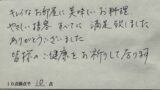 キレイなお部屋に美味しいお料理
やさしい接客 すべてに 満足致しました
ありがとうございました
皆様のご健康をお祈りして居ります
10点満点で 10 点